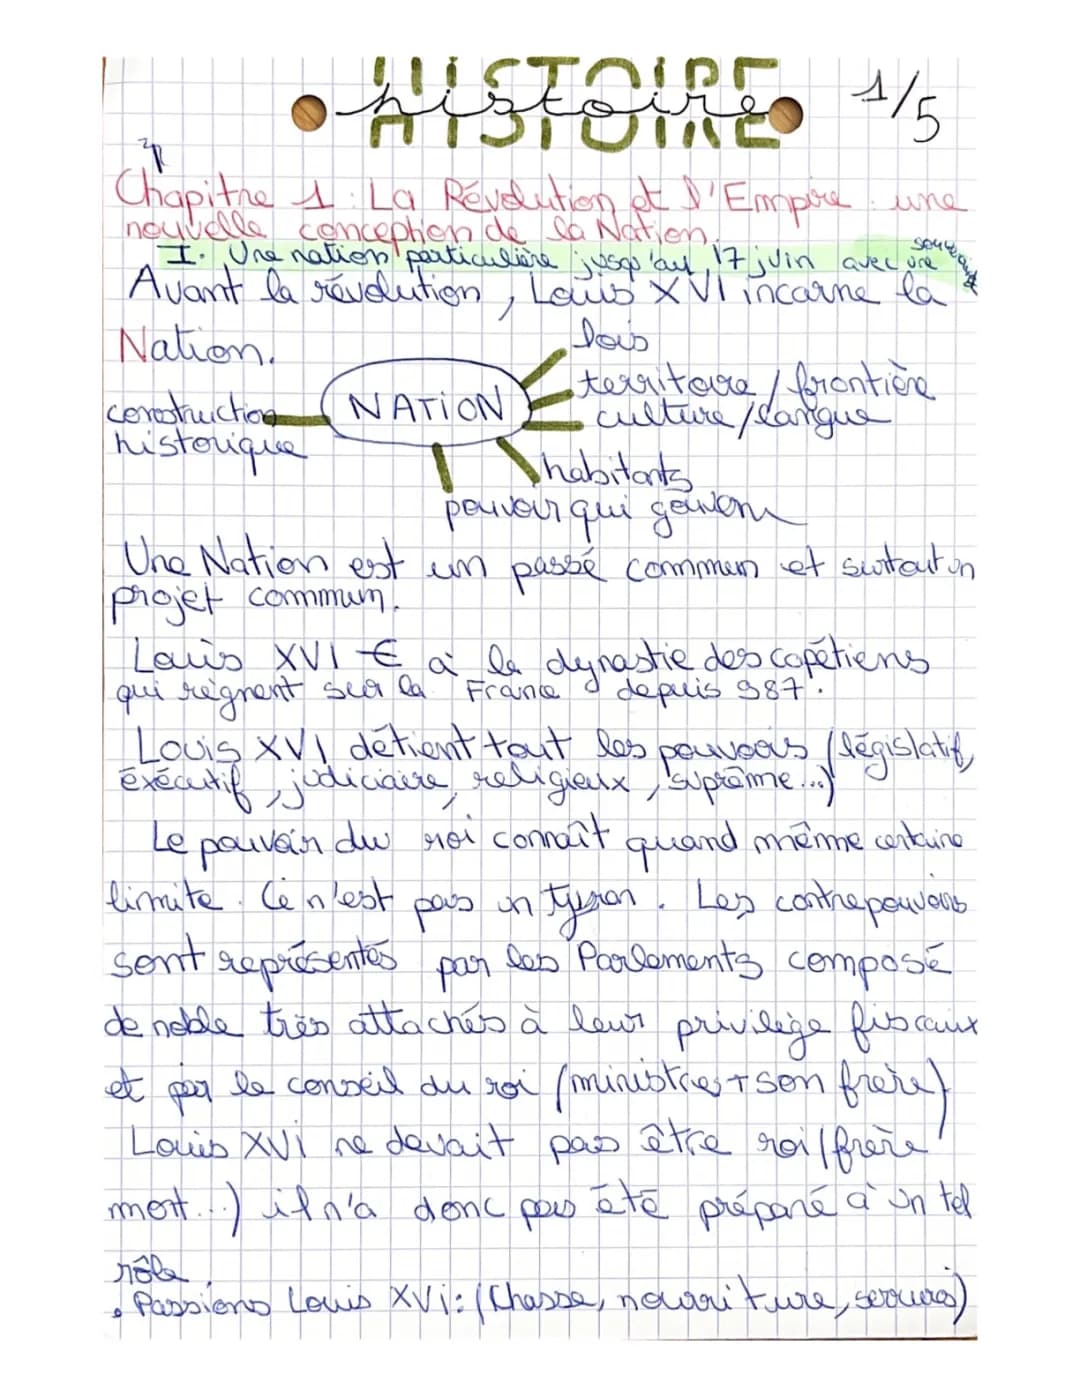 HISTOIRE
histoire
1/5
Chapitre 1 : La Révolution et l'Empire : une
nouvelle conception de la Nation.
I. Une nation particulière jusqu'au 17 juin avec une
Avant la révolution, Louis XVI incarne la
Nation.
lois
territoire / frontière
construction
historique
NATION
culture / langue
habitants
pouvoir qui gouverne
Une Nation est un passé commun et surtout un
projet commum.
Louis XVI € à la dynastie des capétiens
qui règnent sur la France depuis 987.
Louis XVI détient tout les pouvoirs (législatif,
éxécutif, judiciaire, religieux, suprême...)
Le pouvoir du roi connaît quand même certaine
limite. Ce n'est pas un tyran. Les contrepouvoirs
sont représentés par les Parlements composé
de noble très attachés à leur privilège fiscaux
et par le conseil du roi (ministres + son frère)
Louis XVI ne devait pas être roi (frère
mort...) il n'a donc pas été préparé à un tel
rôle.
• Passions Louis XVI : (Chasse, nourriture, serrures)